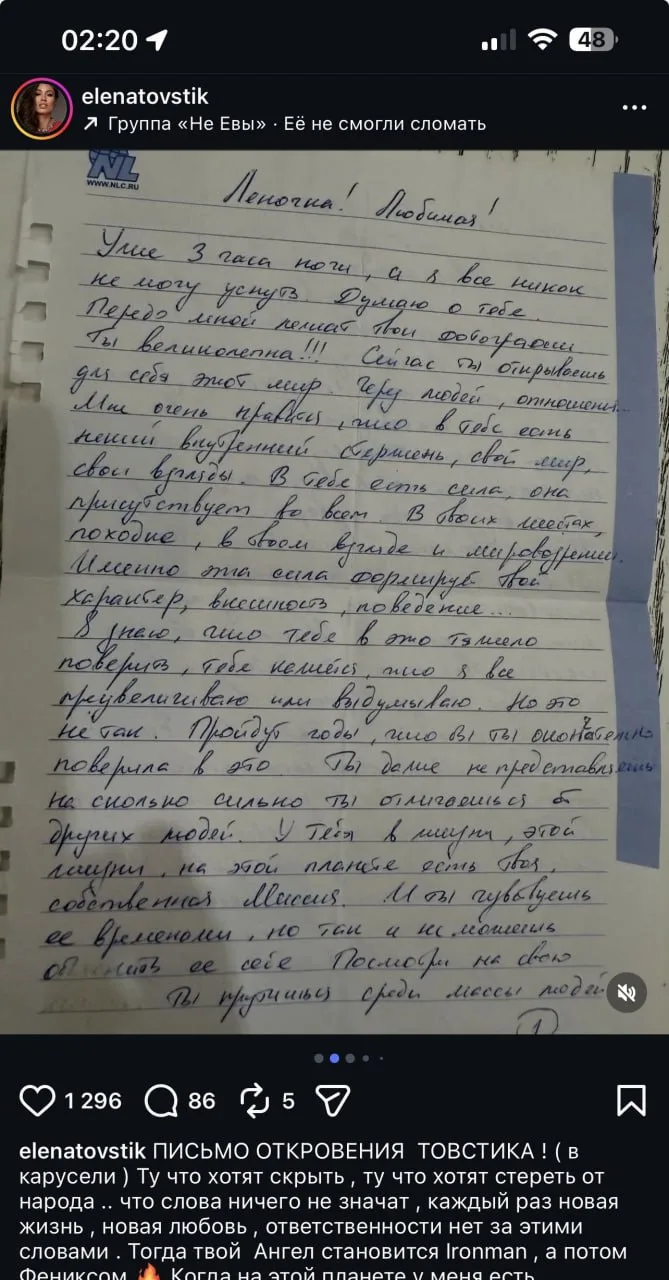 02:20
48
elenatovstik
Группа «Не Евы» · Её не смогли сломать
NL
WWW.NLC.RU
Леночка! Любимая!
Уже 3 часа ночи, а я все никак
не могу уснуть. Думаю о тебе.
Передо мной лежат твои фотографии
Ты великолепна!!! Сейчас ты открываешь
для себя этот мир. Через людей, отношения...
Мне очень нравится, что в тебе есть
некий внутренний стержень, свой мир,
свои взгляды. В тебе есть сила, она
присутствует во всем. В твоих жестах,
походке, в твоем взгляде и мировоззрении.
Именно эта сила формирует твой
характер, внешность, поведение...
Я знаю, что тебе в это тяжело
поверить, тебе кажется, что я все
преувеличиваю или выдумываю. Но это
не так. Пройдут годы, что бы ты окончательно
поверила в это Ты даже не представляешь
на сколько сильно ты отличаешься от
других людей. У тебя в жизни, этой
жизни, на этой планете есть твоя,
собственная Миссия. И ты чувствуешь
ее временами, но так и не можешь
объяснить ее себе Посмотри на свою
Ты крутишься среди массы людей
1
1 296
86
5
elenatovstik ПИСЬМО ОТКРОВЕНИЯ ТОВСТИКА ! ( в
карусели ) Ту что хотят скрыть , ту что хотят стереть от
народа .. что слова ничего не значат , каждый раз новая
жизнь , новая любовь , ответственности нет за этими
словами . Тогда твой Ангел становится Ironman , а потом
Фениксом 🔥 Когда на этой планете у меня есть